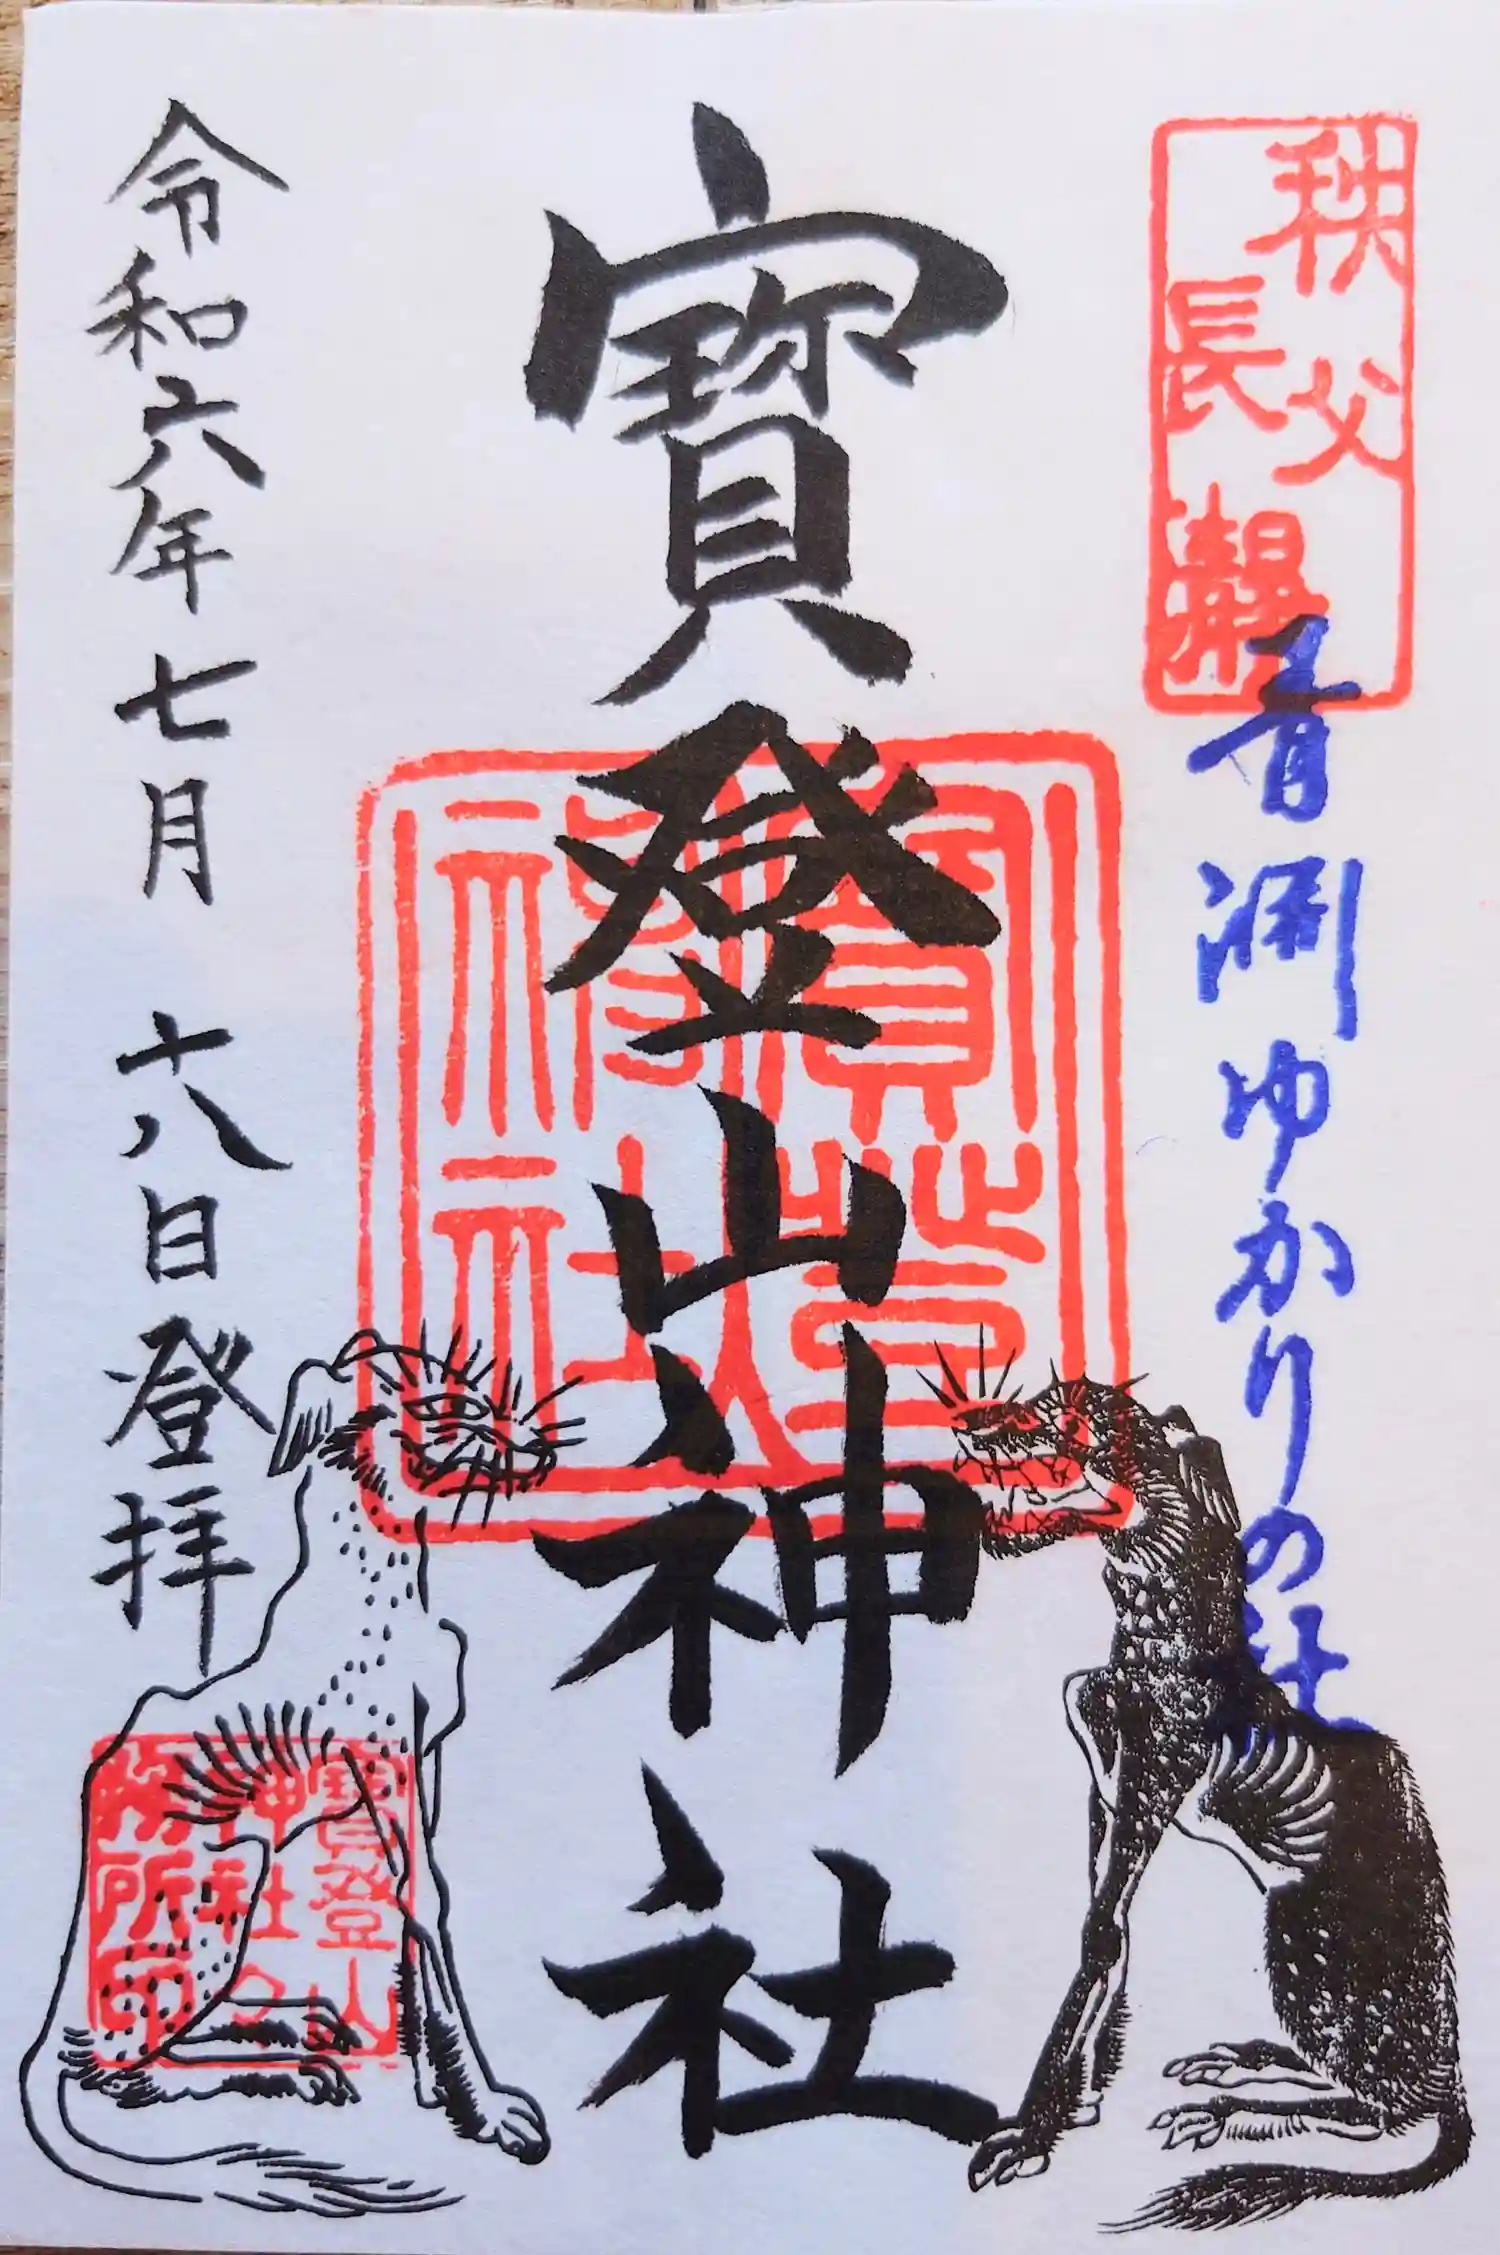 秩父
長瀞
青淵ゆかりの社
寳登山神社
寳登山
神社
令和六年七月十八日登拝
寳登山
神社之
務所印